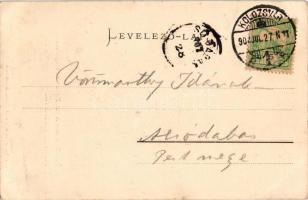 LEVELEZŐ-LAP
KOLOZSVÁR
904 JUL. 27
Vörösmarthy Idának
Alsódabas
Pest mege